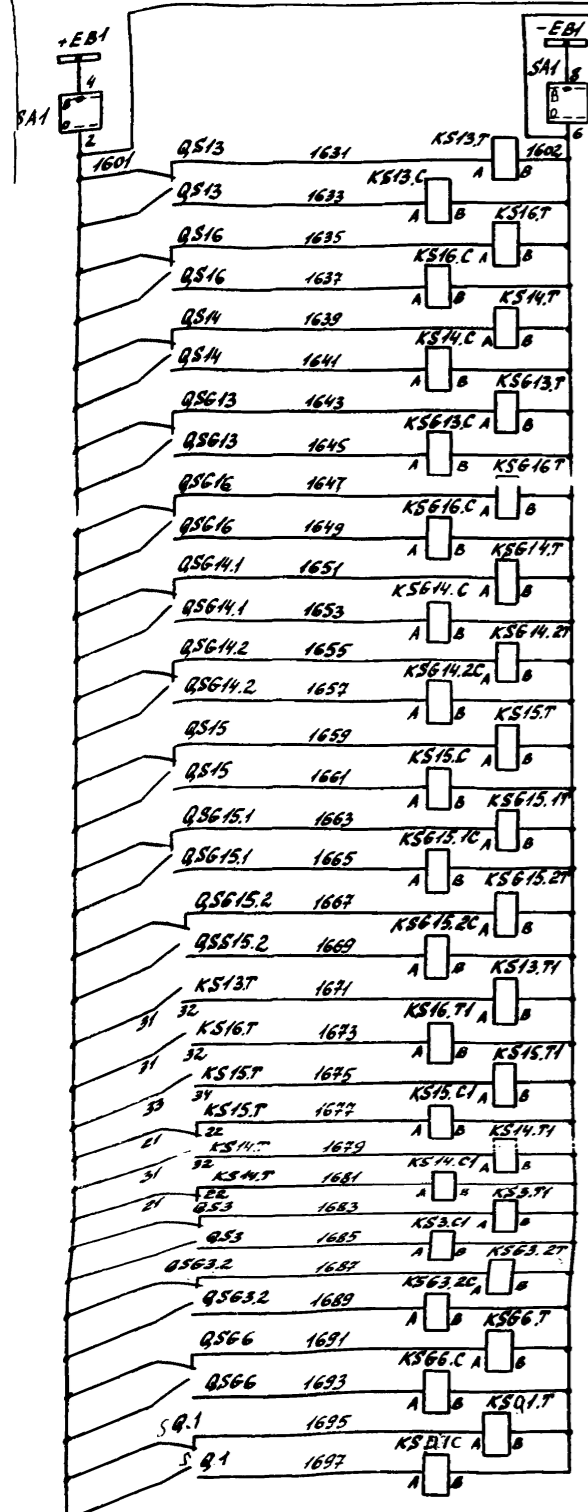 +EB1 -EB1
4 SA1 8
SA1 B B
O O
2 6
1601 QS13 1631 KS13.T 1602
A B
QS13 1633 KS13.C
A B
QS16 1635 KS16.T
A B
QS16 1637 KS16.C
A B
QS14 1639 KS14.T
A B
QS14 1641 KS14.C
A B
QSG13 1643 KSG13.T
A B
QSG13 1645 KSG13.C
A B
QSG16 1647 KSG16T
A B
QSG16 1649 KSG16.C
A B
QSG14.1 1651 KSG14.T
A B
QSG14.1 1653 KSG14.C
A B
QSG14.2 1655 KSG14.2T
A B
QSG14.2 1657 KSG14.2C
A B
QS15 1659 KS15.T
A B
QS15 1661 KS15.C
A B
QSG15.1 1663 KSG15.1T
A B
QSG15.1 1665 KSG15.1C
A B
QSG15.2 1667 KSG15.2T
A B
QSS15.2 1669 KSG15.2C
A B
KS13.T 1671 KS13.T1
31 32 A B
KS16.T 1673 KS16.T1
31 32 A B
KS15.T 1675 KS15.T1
33 34 A B
KS15.T 1677 KS15.C1
21 22 A B
KS14.T 1679 KS14.T1
31 32 A B
KS14.T 1681 KS14.C1
21 22 A B
QS3 1683 KS3.T1
A B
QS3 1685 KS3.C1
A B
QSG3.2 1687 KSG3.2T
A B
QSG3.2 1689 KSG3.2C
A B
QSG6 1691 KSG6.T
A B
QSG6 1693 KSG6.C
A B
SQ.1 1695 KSQ1.T
A B
SQ.1 1697 KSQ1C
A B